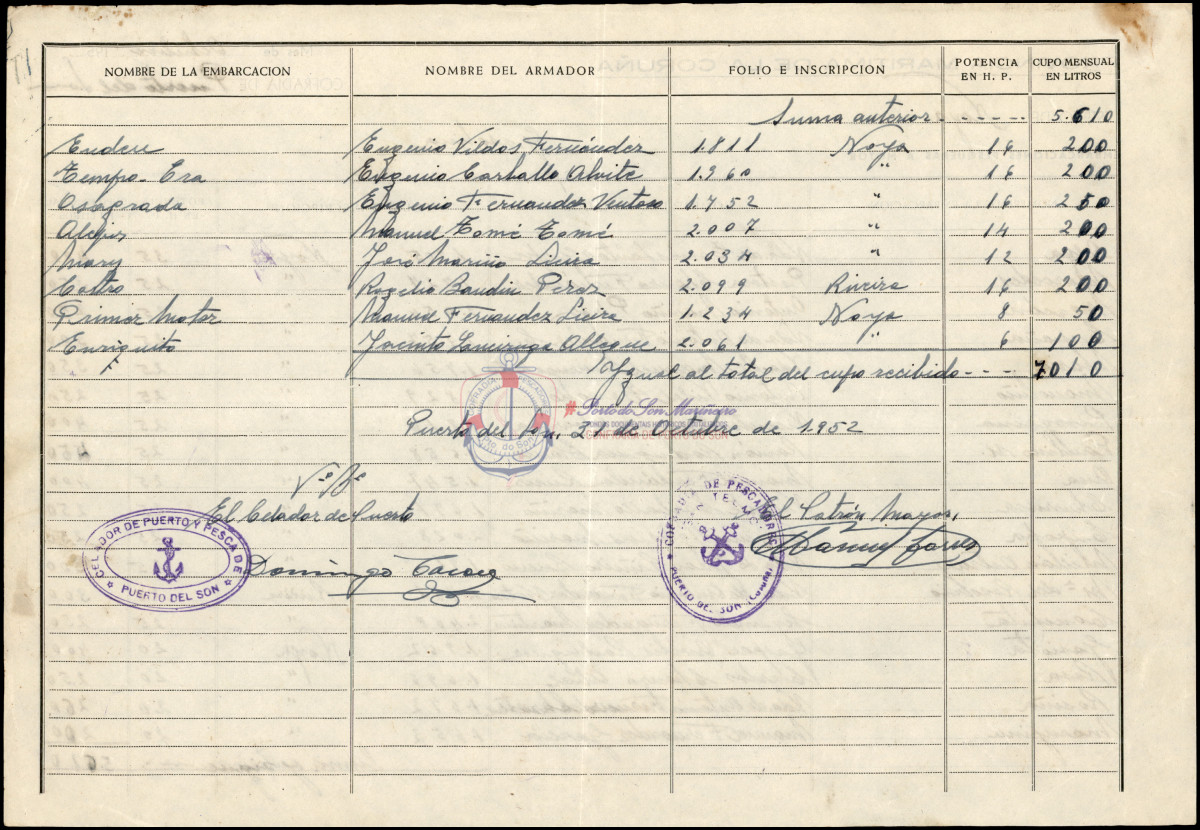 NOMBRE DE LA EMBARCACION NOMBRE DEL ARMADOR FOLIO E INSCRIPCION POTENCIA EN H. P. CUPO MENSUAL EN LITROS
Suma anterior - - - - - - 5.610
Eudere Eugenio Vildos Fernández 1.811 Noya 16 200
Tempo-Era Eugenio Carballo Alvite 1.960 " 16 200
Osagrada Eugenio Fernandez Ventoso 1.752 " 16 250
Manuel Tomé Tomé 2.007 " 14 200
Mary José Mariño Lieira 2.034 " 12 200
Castro Rogelio Baudin Perez 2.099 Riveira 16 200
Primer Motor Manuel Fernandez Lieira 1.234 Noya 8 50
Enriquito Jacinto 2.061 " 6 100
Ygual al total del cupo recibido - - - - 7010
# Porto do Son Mariñeiro
Puerto del Son, 21 de Octubre de 1.952
CONFRARÍA DE PORTO DO SON
Vº Bº
El Celador de Puerto El Patrón Mayor,
CELADOR DE PUERTO Y PESCA DE
PUERTO DEL SON
COFRADIA DE PESCADORES
SAN TELMO
PUERTO DEL SON (Coruña)
Domingo
Manuel